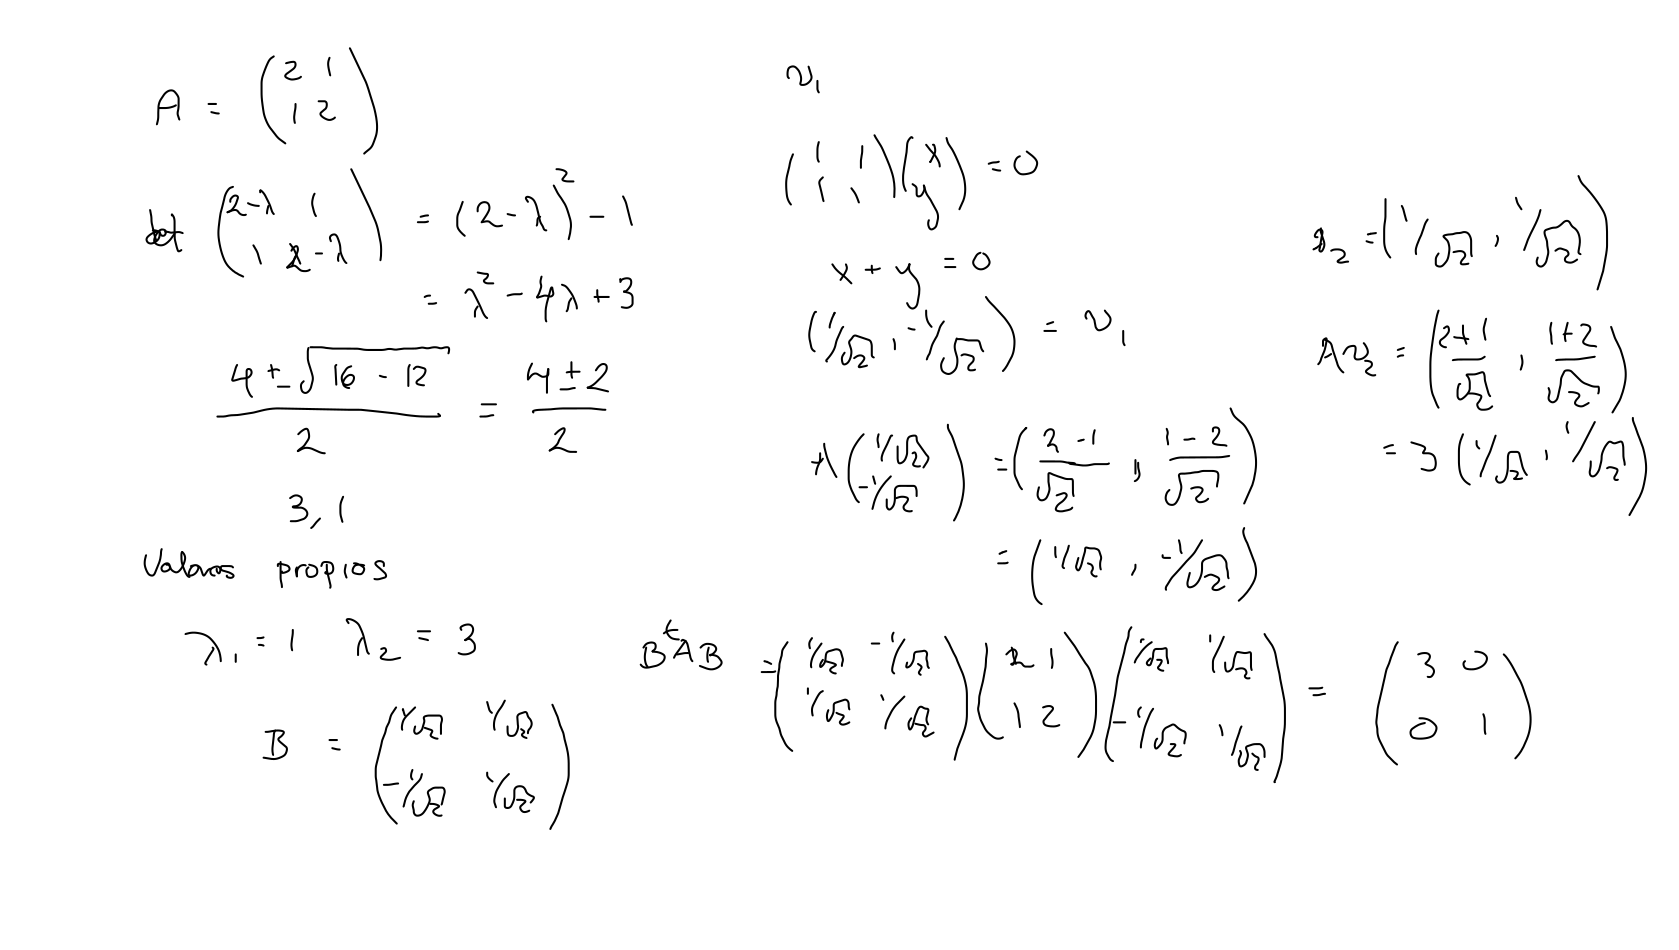 A = (2 1
1 2)
det (2-λ 1
1 2-λ) = (2-λ)² - 1
= λ² - 4λ + 3
(4 ± √(16 - 12))/2 = (4 ± 2)/2
3, 1
Valores propios
λ₁ = 1 λ₂ = 3
B = (1/√2 1/√2
-1/√2 1/√2)
v₁
(1 1
1 1)(x
y) = 0
x + y = 0
(1/√2, -1/√2) = v₁
A(1/√2
-1/√2) = ((2-1)/√2, (1-2)/√2)
= (1/√2, -1/√2)
v₂ = (1/√2, 1/√2)
Av₂ = ((2+1)/√2, (1+2)/√2)
= 3 (1/√2, 1/√2)
BᵗAB = (1/√2 -1/√2
1/√2 1/√2)(2 1
1 2)(1/√2 1/√2
-1/√2 1/√2) = (3 0
0 1)